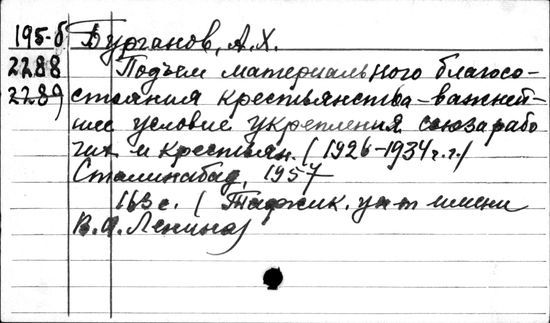 195-б Бурганов, А.Х.
2288 Подъем материального благосо-
2289 стояния крестьянства - важней-
шее условие укрепления союза рабо
чих и крестьян. (1926-1934 г.г.)
Сталинабад, 1957
163 с. (Таджик. ун-т имени
В.И. Ленина)